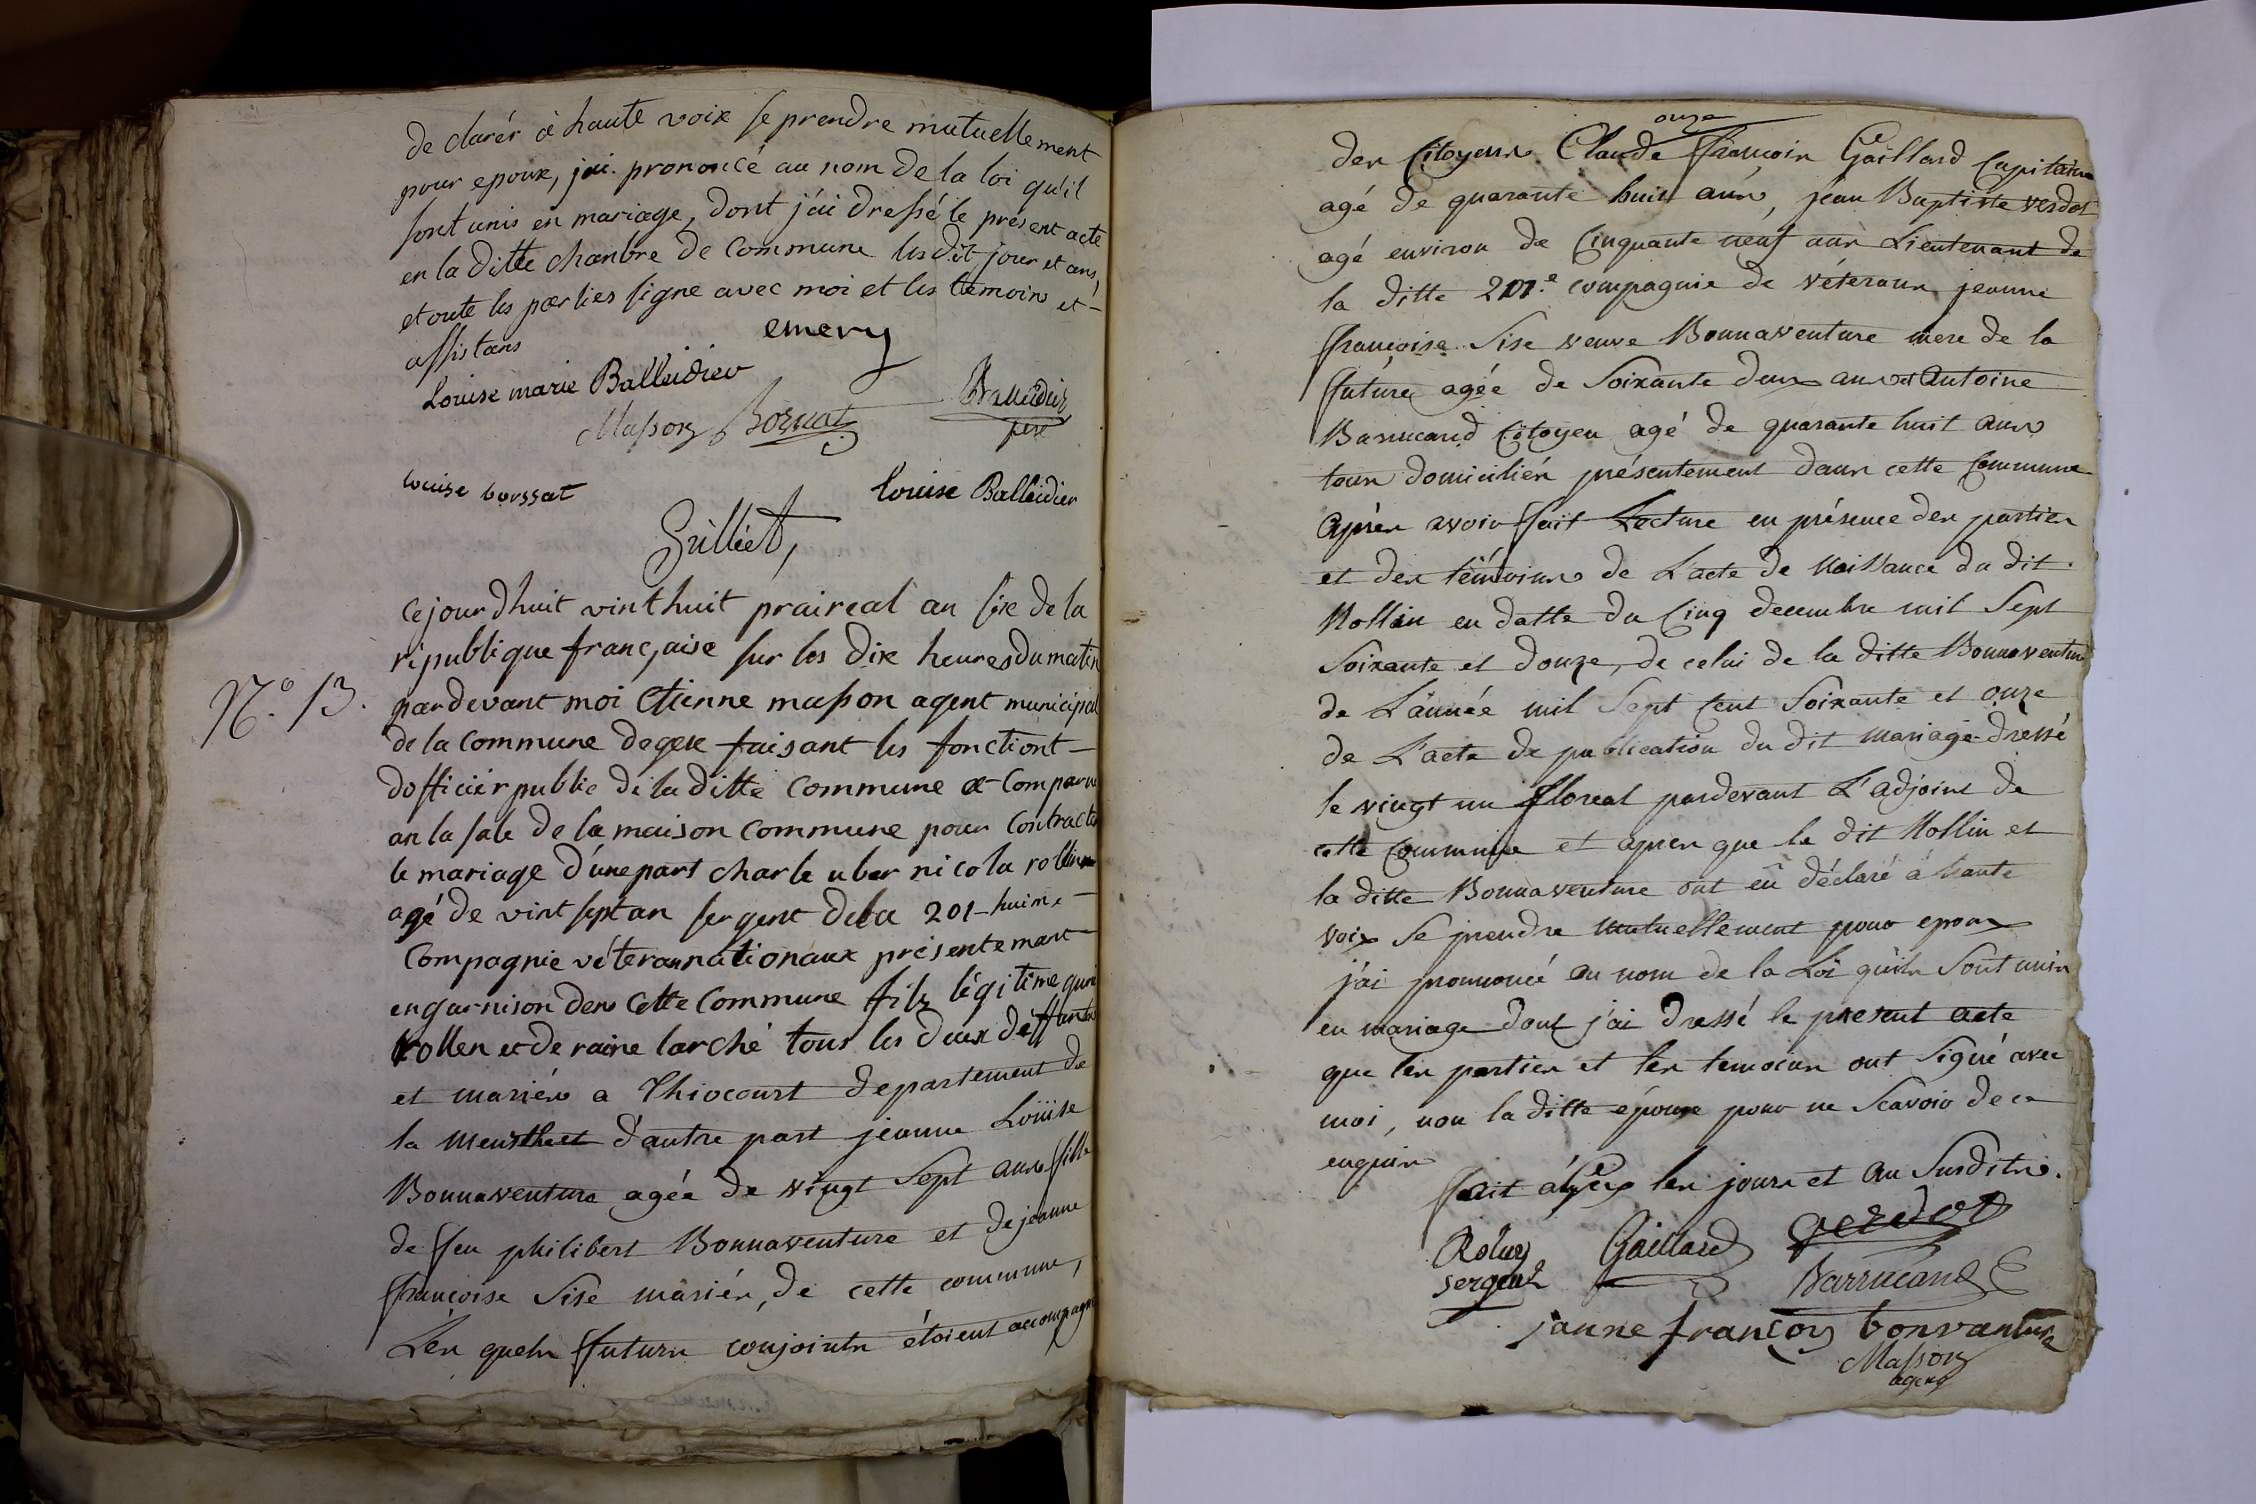 de clarér à haute voix se prendre mutuellement
pour epoux, jai prononcé au nom de la loi qu'il
sont unis en mariage, dont j'ai dressé le présent acte
en la ditte chambre de commune lesdit jour et ans,
et onte les parties signe avec moi et les temoins et
assistans
emery
Louise marie Balleidier
Masson Bornat Balleidier
pere
louise borssat
Louise Balleidier
Gilliet,
cejourdhuit vinthuit praireal an sixe de la
republique française sur les dixe heures du matin
N.º 13. pardevant moi Etienne masson agent municipal
de la commune degex faisant les fonctiont
dofficiér public de la ditte commune a comparu
an la sale de la maison commune pour contracter
le mariage d'une part charle uber nicola rollin
agé de vint sept an sergent de la 201-huime
compagnie véteran nationaux présentemant
en garnison dens cette commune fils légitime
Rollen et de raine larché tous les deux deffants
et mariés a Thiocourt departement de
la meusthe et d'autre part jeanne Loüise
Bonnaventure agée de vingt sept ans fille
de feu philibert Bonnaventure et de jeanne
françoise Sise mariés, de cette commune,
Les quels futurs conjoints étoient accompagné
onze
des Citoyens Claude françois Gaillard Capitaine
agé de quarante huit ans, jean Baptiste verdot
agé environ de Cinquante neuf ans Lieutenant de
la ditte 201.e compagnie de véterans jeanne
françoise Sise veuve Bonnaventure mere de la
future agée de Soixante deux ans et Antoine
Barrucand Citoyen agé de quarante huit ans
tous domiciliés présentement dans cette Commune
Après avoir fait Lecture en présence des parties
et des témoins de L'acte de Naissance du dit
Rollin en datte du Cinq decembre mil Sept
Soixante et douze, de celui de la ditte Bonnaventure
de L'année mil Sept Cent Soixante et onze
de L'acte de publication du dit mariage dressé
le vingt un floreal pardevant L'adjoint de
cette Commune et apres que le dit Rollin et
la ditte Bonnaventure ont eû déclaré à haute
voix Se prendre mutuellement pour epoux
j'ai prononcé au nom de la Loi qu'ils Sont unis
en mariage dont j'ai dressé le present acte
que les parties et les temoins ont Signé avec
moi, non la ditte épouse pour ne Scavoir de ce
enquis
fait à Gex les jours et an Susdits.
Rolin Gaillard verdot
sergent Barrucand
janne françois bonvanture
Masson
agent